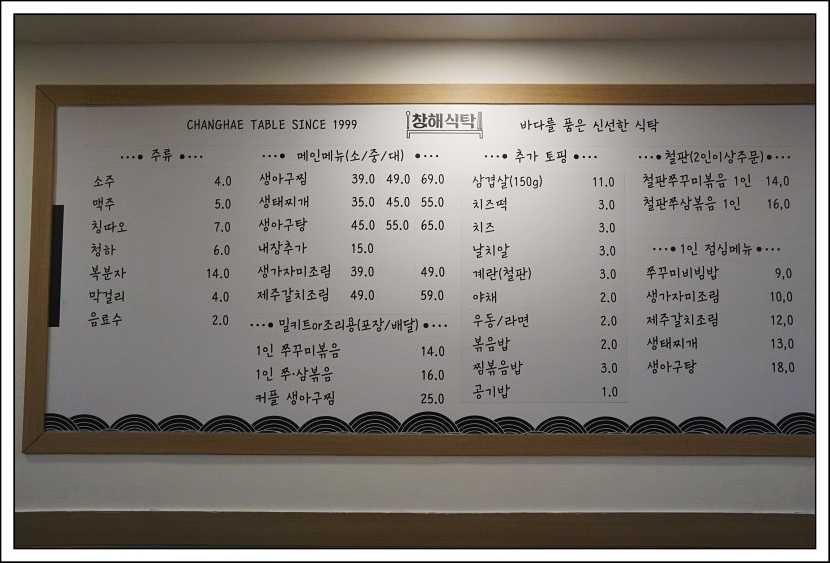 CHANGHAE TABLE SINCE 1999
창해식탁
바다를 품은 신선한 식탁
주류
소주 4.0
맥주 5.0
칭따오 7.0
청하 6.0
복분자 14.0
막걸리 4.0
음료수 2.0
메인메뉴(소/중/대)
생아구찜 39.0 49.0 69.0
생태찌개 35.0 45.0 55.0
생아구탕 45.0 55.0 65.0
내장추가 15.0
생가자미조림 39.0 49.0
제주갈치조림 49.0 59.0
밀키트or조리용(포장/배달)
1인 쭈꾸미볶음 14.0
1인 쭈·삼볶음 16.0
커플 생아구찜 25.0
추가 토핑
삼겹살(150g) 11.0
치즈떡 3.0
치즈 3.0
날치알 3.0
계란(철판) 3.0
야채 2.0
우동/라면 2.0
볶음밥 2.0
찜볶음밥 3.0
공기밥 1.0
철판(2인이상주문)
철판쭈꾸미볶음 1인 14,0
철판쭈삼볶음 1인 16,0
1인 점심메뉴
쭈꾸미비빔밥 9,0
생가자미조림 10,0
제주갈치조림 12,0
생태찌개 13,0
생아구탕 18,0